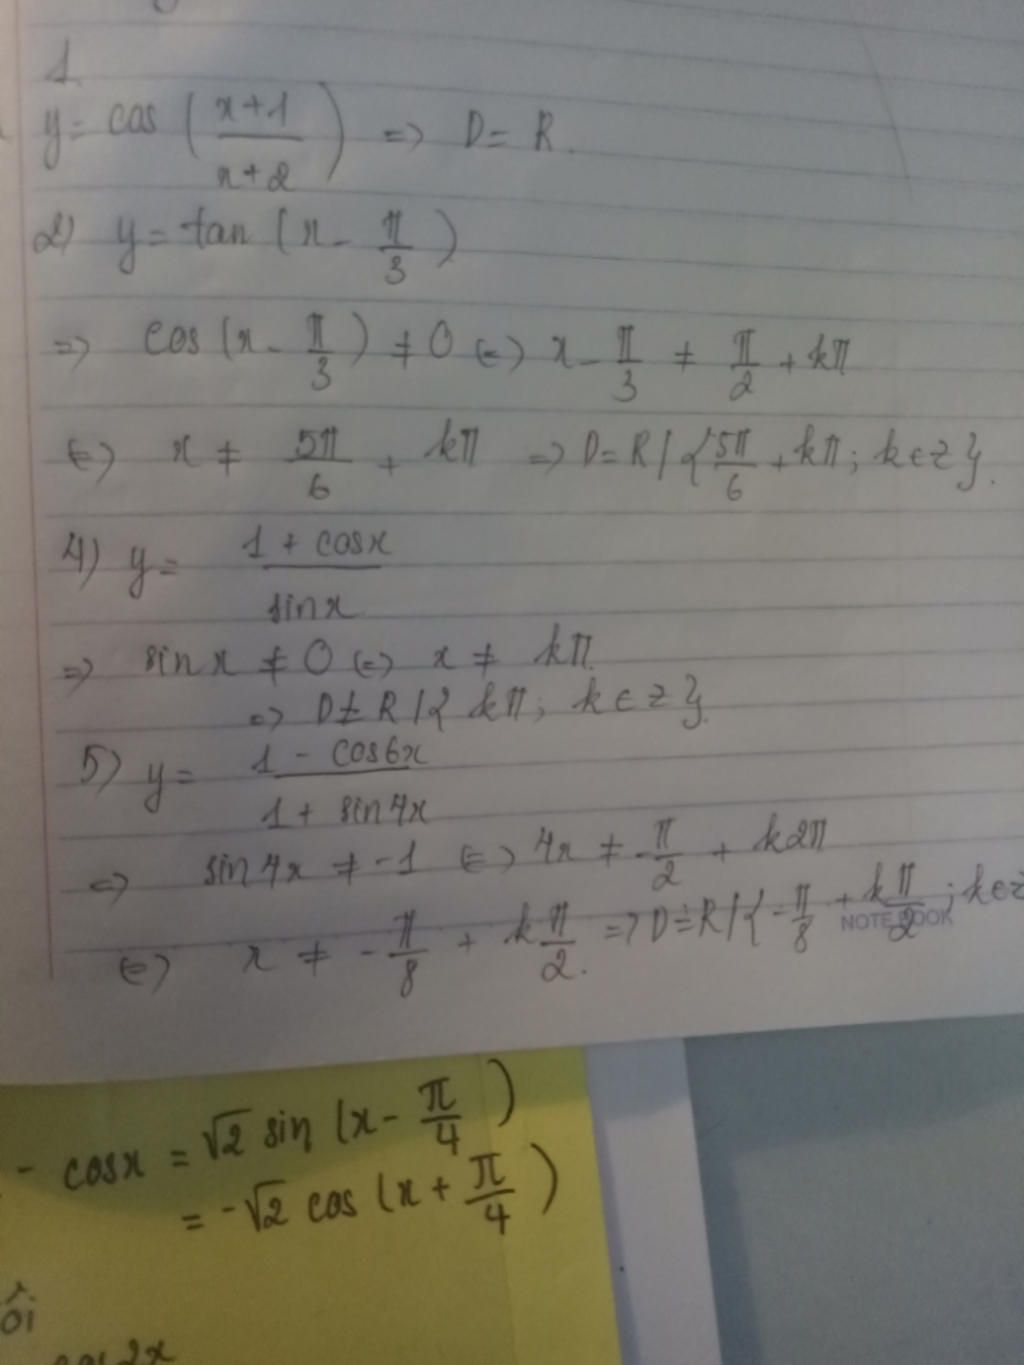 1.
y = cos ( (x+1)/(x+2) ) => D = R.
2) y = tan ( x - π/3 )
=> cos ( x - π/3 ) ≠ 0 <=> x - π/3 ≠ π/2 + kπ
<=> x ≠ 5π/6 + kπ => D = R / { 5π/6 + kπ ; k ∈ z }.
4) y = (1 + cosx)/(sinx)
=> sinx ≠ 0 <=> x ≠ kπ
=> D = R / { kπ ; k ∈ z }.
5) y = (1 - cos6x)/(1 + sin4x)
=> sin4x ≠ -1 <=> 4x ≠ -π/2 + k2π
<=> x ≠ -π/8 + kπ/2. => D = R / { -π/8 + kπ/2 ; k ∈ z
NOTE BOOK
- cosx = √2 sin (x - π/4)
= -√2 cos (x + π/4)
cos2x